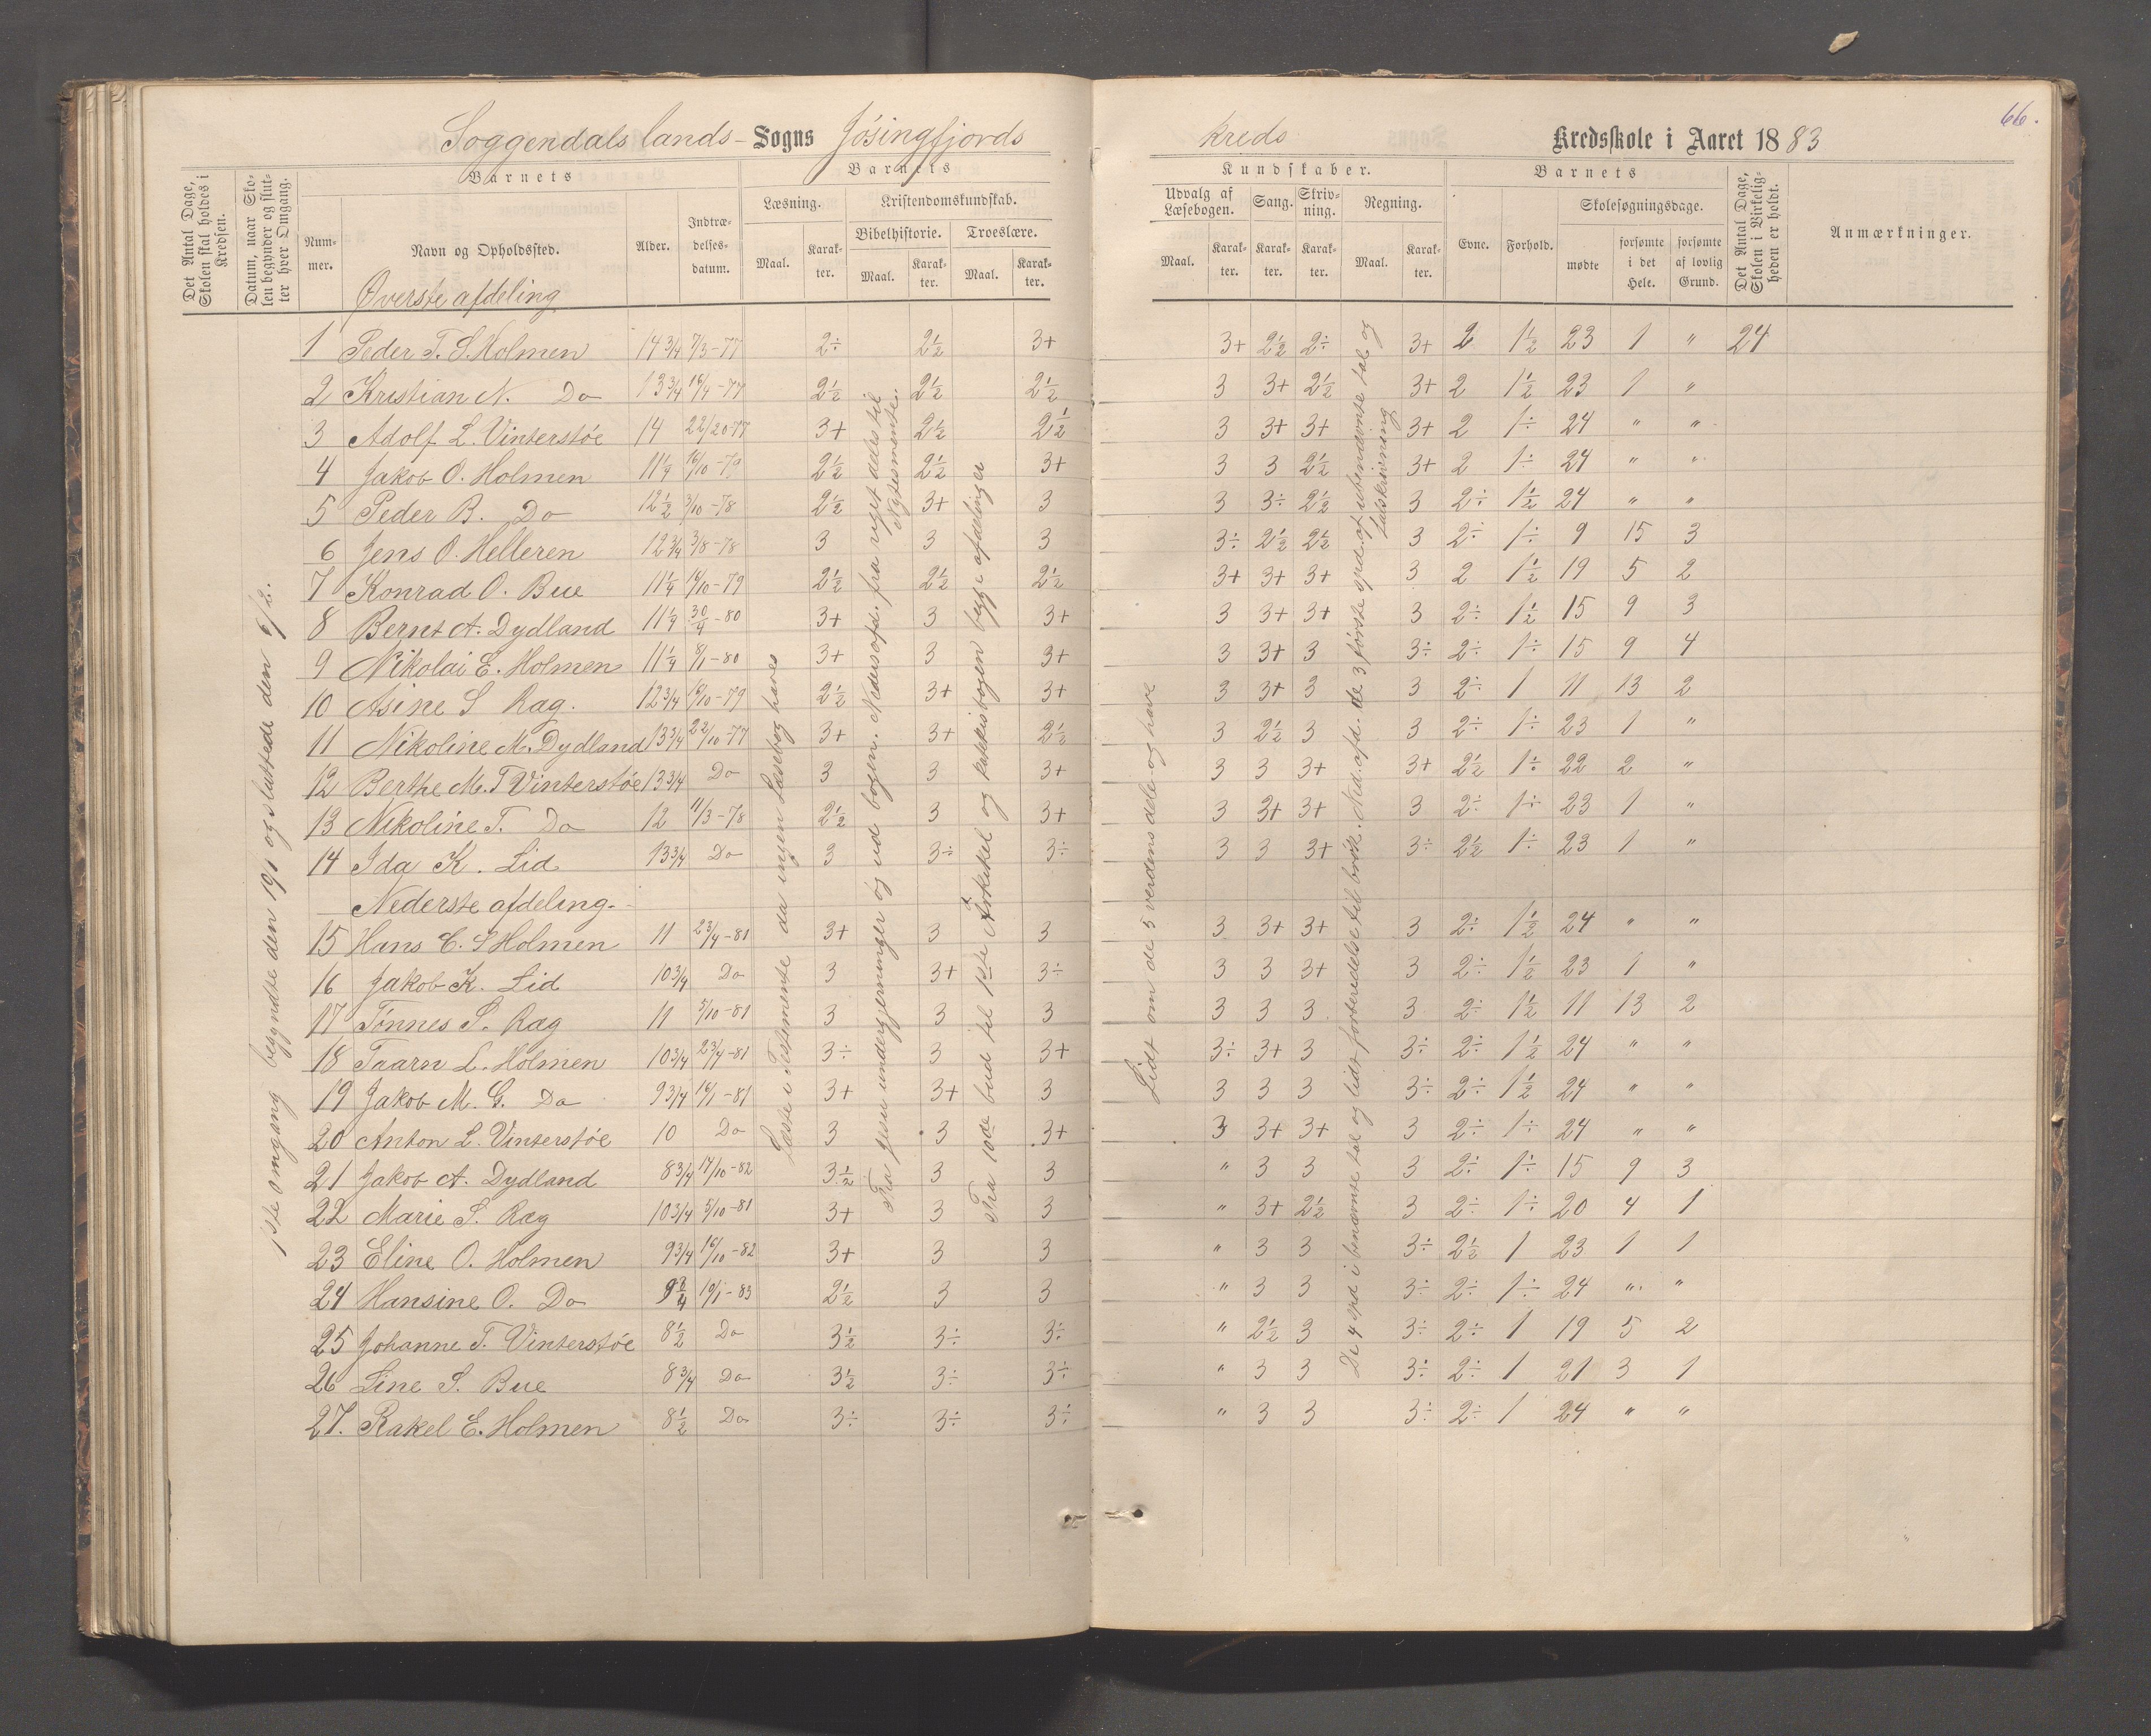 66.
Soggendals lands- Sogns Jösingfjords kreds Kredsskole i Aaret 1883
Det Antal Dage, Skolen skal holdes i Kredsen.
Datum, naar Skolen begynder og slutter hver Omgang.
Barnets
Nummer.
Navn og Opholdssted.
Alder.
Indtrædelsesdatum.
Barnets
Læsning.
Maal.
Karakter.
Kristendomskundskab.
Bibelhistorie.
Maal.
Karakter.
Troeslære.
Maal.
Karakter.
Kundskaber.
Udvalg af Læsebogen.
Maal.
Karakter.
Sang.
Karakter.
Skrivning.
Karakter.
Regning.
Maal.
Karakter.
Barnets
Evne.
Forhold.
Skolesøgningsdage.
mødte
forsømte i det Hele.
forsømte af lovlig Grund.
Det Antal Dage, Skolen i Virkeligheden er holdt.
Anmærkninger.
Øverste afdeling
1 Peder T. S. Holmen 14 3/4 7/3-77 2÷ 2½ 3+ 3+ 2½ 2÷ 3+ 2 1½ 23 1 " 24
2 Kristian N. Do 13 3/4 16/4-77 2½ 2½ 2½ 3 3+ 2½ 3+ 2 1½ 23 1 "
3 Adolf L. Vinterstöe 14 22/10-77 3+ 2½ 2½ 3 3+ 3+ 3+ 2 1÷ 24 " "
4 Jakob O. Holmen 11¼ 16/10-79 2½ 2½ 3+ 3 3 2½ 3+ 2 1÷ 24 " "
5 Peder B. Do 12½ 3/10-78 2½ 3+ 3 3 3÷ 2½ 3 2÷ 1½ 24 " "
6 Jens O. Helleren 12 3/4 3/8-78 3 3 3 3÷ 2½ 2½ 3 2÷ 1÷ 9 15 3
7 Konrad O. Bue 11¼ 14/10-79 2½ 2½ 2½ 3+ 3+ 3+ 3 2 1½ 19 5 2
8 Bernt A. Dydland 11¼ 30/4-80 3+ 3 3+ 3 3+ 3+ 3 2÷ 1½ 15 9 3
9 Nikolai E. Holmen 11¼ 8/1-80 3+ 3 3+ 3 3+ 3 3÷ 2÷ 1÷ 15 9 4
10 Asine S Ræg. 12 3/4 16/10-79 2½ 3+ 3+ 3 3+ 3 3 2÷ 1 11 13 2
11 Nikoline M. Dydland 13 3/4 22/10-77 3+ 3+ 2½ 3 2½ 3 3 2÷ 1÷ 23 1 "
12 Berthe M. T Vinterstöe 13 3/4 Do 3 3 3+ 3 3 3+ 3+ 2½ 1÷ 22 2 "
13 Nikoline T. Do 12 11/3-78 2½ 3 3+ 3 3+ 3+ 3 2÷ 1÷ 23 1 "
14 Ida K. Lid 13 3/4 Do 3 3÷ 3÷ 3 3 3+ 3÷ 2½ 1÷ 23 1 "
Nederste afdeling.
15 Hans C. S Holmen 11 23/4-81 3+ 3 3 3 3+ 3+ 3 2÷ 1½ 24 " "
16 Jakob K. Lid 10 3/4 Do 3 3+ 3÷ 3 3 3+ 3 2÷ 1½ 23 1 "
17 Tönnes S. Ræg 11 5/10-81 3 3 3 3 3 3 3 2÷ 1½ 11 13 2
18 Taarn L. Holmen 10 3/4 23/4-81 3÷ 3 3+ 3÷ 3+ 3 3÷ 2÷ 1½ 24 " "
19 Jakob M. G. Do 9 3/4 16/1-81 3+ 3+ 3 3 3 3 3÷ 2÷ 1½ 24 " "
20 Anton L. Vinterstöe 10 Do 3 3 3+ 3 3+ 3+ 3 2÷ 1÷ 24 " "
21 Jakob A. Dydland 8 3/4 17/10-82 3½ 3 3 " 3 3 3 2÷ 1÷ 15 9 3
22 Marie S. Ræg 10 3/4 5/10-81 3+ 3 3 " 3+ 2½ 3 2÷ 1÷ 20 4 1
23 Eline O. Holmen 9 3/4 16/10-82 3+ 3 3 " 3 3 3÷ 2½ 1 23 1 1
24 Hansine O. Do 9 3/4 19/1-83 2½ 3 3 " 3 3 3÷ 2÷ 1÷ 24 " "
25 Johanne T. Vinterstöe 8½ Do 3½ 3÷ 3÷ " 2½ 3 3÷ 2÷ 1 19 5 2
26 Line S. Bue 8 3/4 Do 3½ 3÷ 3÷ " 3 3 3÷ 2÷ 1 21 3 1
27. Rakel E. Holmen 8½ Do 3÷ 3÷ 3÷ " 3 3 3÷ 2÷ 1 24 " "
1ste omgang begyndte den 19/1 og sluttede den 6/2.
Læste i Testamente da ingen Læsebog haves
Fra Jesu undergjerninger og ud bogen. Neders afd. fra riget deles til Nytesmente.
Fra 10de bud til 1ste Artikel og katekisbogen begge afdelinger
Lidt om de 5 verdens dele og have
De 4 spd i benævnte tal og lidt forberedelse til brök. Ned. afd. de 3 första spd. af ubenævnte tal og talskrivning